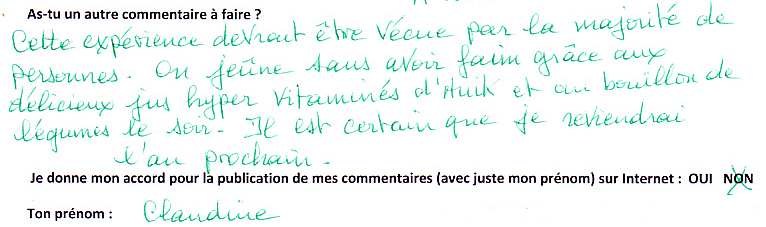 As-tu un autre commentaire à faire ?
Cette expérience devrait être vécue par la majorité de
personnes. On jeûne sans avoir faim grâce aux
délicieux jus hyper vitaminés d'Huik et au bouillon de
légumes le soir. Il est certain que je reviendrai
l'an prochain.
Je donne mon accord pour la publication de mes commentaires (avec juste mon prénom) sur Internet : OUI NON
Ton prénom : Claudine